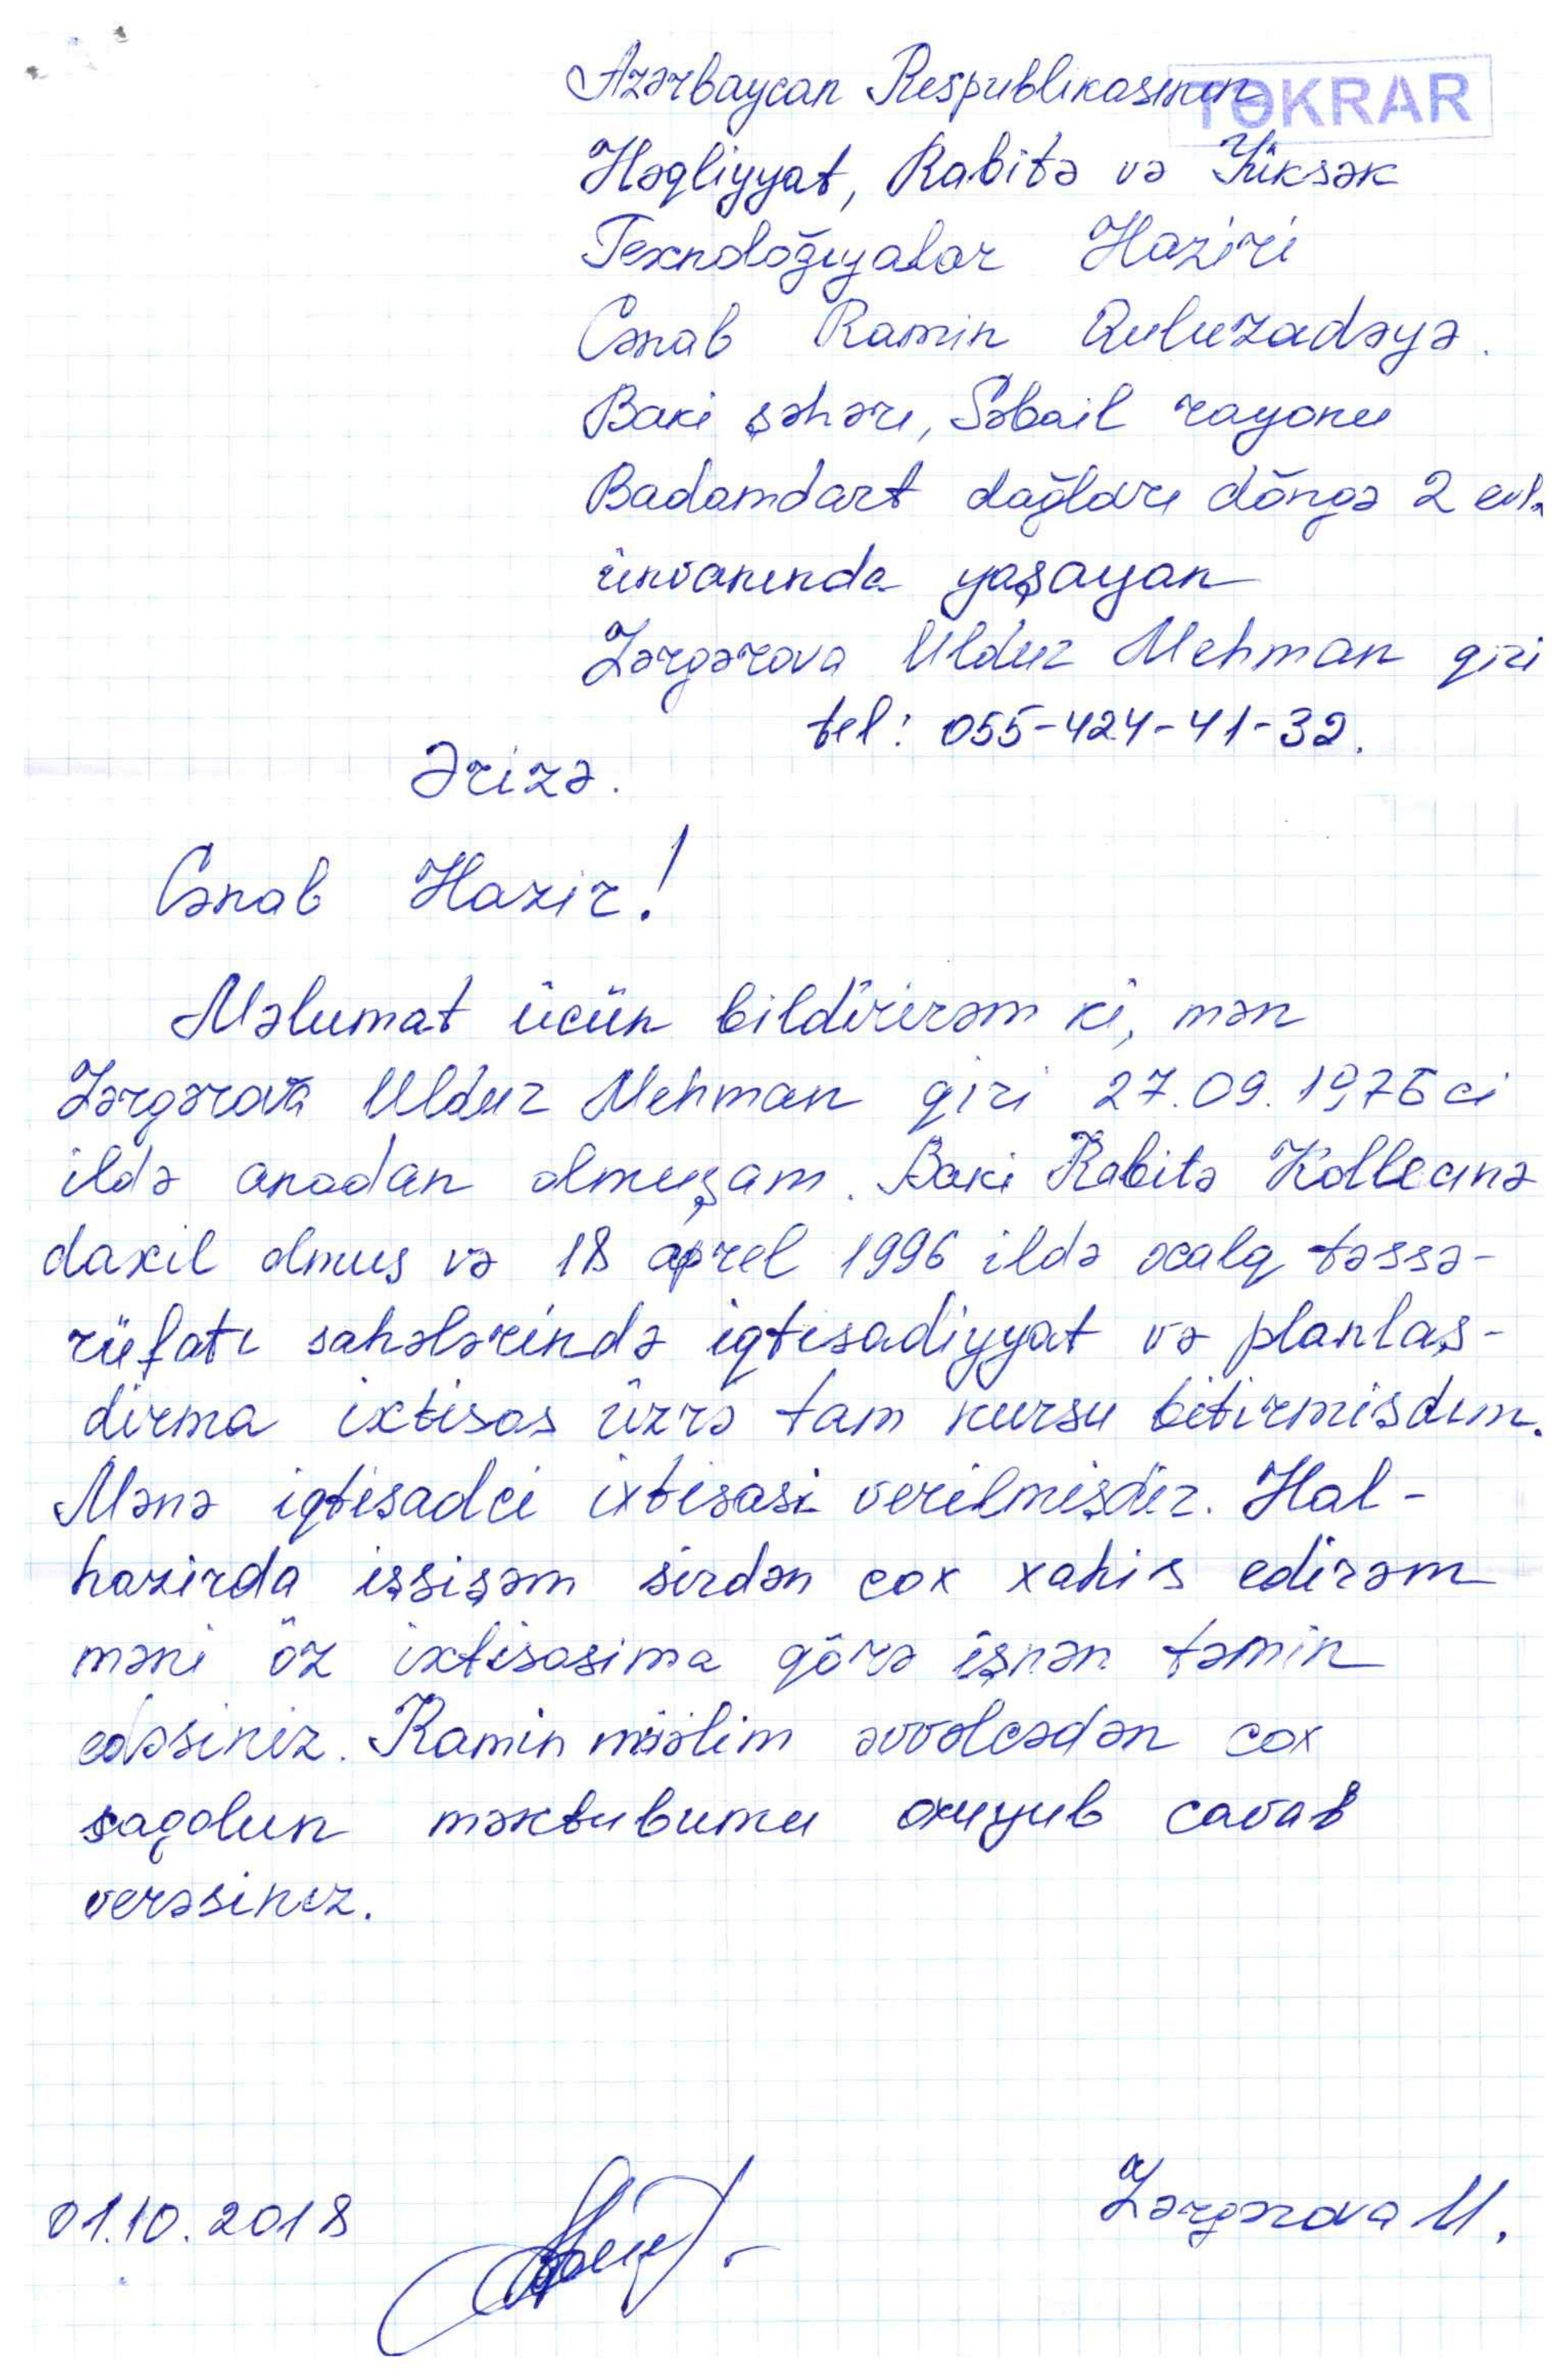 Azərbaycan Respublikasının
TƏKRAR
Nəqliyyat, Rabitə və Yüksək
Texnoloğıyalar Naziri
Cənab Ramin Quluzadəyə.
Baki şəhəri, Səbail rayonu
Badamdart dağları döngə 2 evl.
ünvanında yaşayan
Zərgərova Ulduz Mehman qizi
tel: 055-424-41-32.
Ərizə.
Cənab Nazir!
Məlumat ücün bildirirəm ki, mən
Zərgərova Ulduz Mehman qizi 27.09.1976 ci
ildə anadan olmuşam. Baki Rabitə Kollecinə
daxil olmuş və 18 aprel 1996 ildə xalq təssə-
rüfatı sahələrində iqtisadiyyat və planlaş-
dirma ixtisas üzrə tam kursu bitirmisdim.
Mənə iqtisadci ixtisasi verilmişdir. Hal-
hazirda işsişəm sizdən cox xahis edirəm
məni öz ixtisasima görə işnən təmin
edəsiniz. Ramin müəlim əvvəlcədən cox
sagolun məktubumu oxuyub cavab
verəsiniz.
01.10.2018
Zərgərova U.